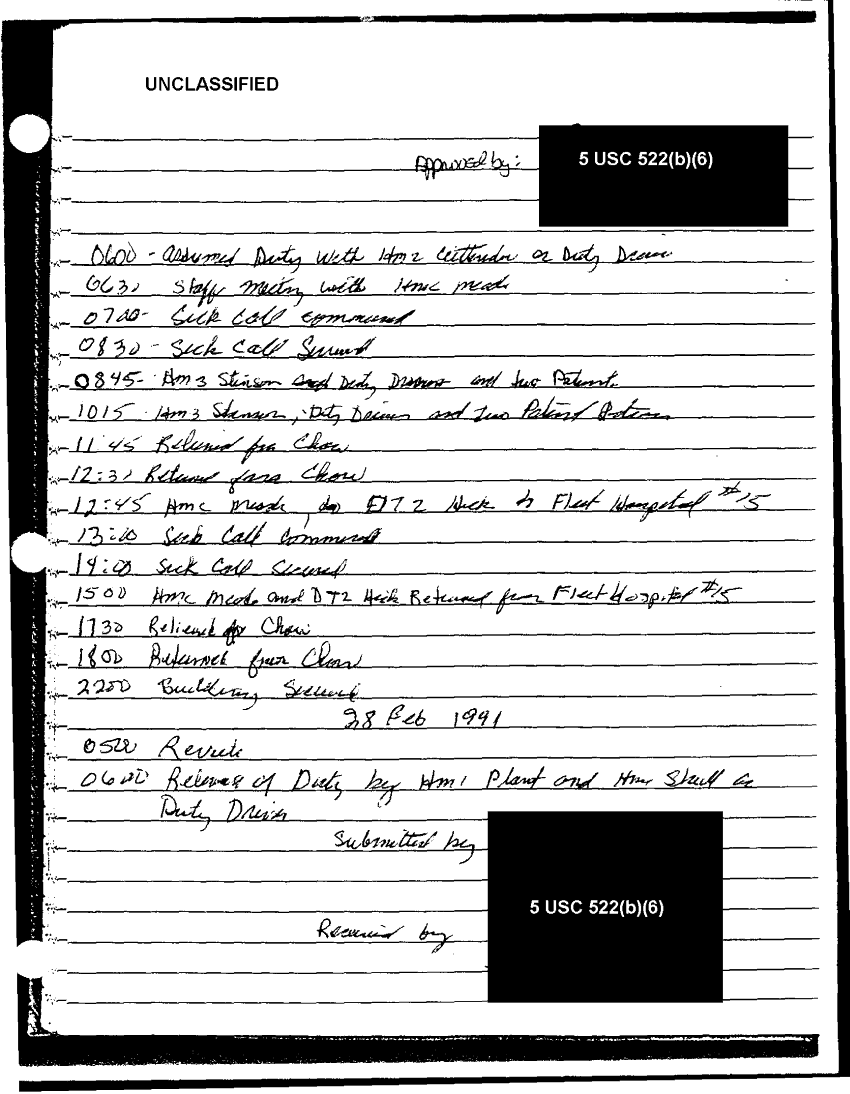 UNCLASSIFIED
Approved by:
5 USC 522(b)(6)
0600 - Assumed Duty With Hm2 as Duty Driver
0630 Staff Meeting with Hmc Meade
0700- Sick Call commenced
0830 - Sick Call Secured
0845- Hm3 Stinson and Duty Driver and two Patient
1015 Hm3 Stinson, Duty Driver and two Patient Return
11:45 Relieved for Chow
12:30 Returned from Chow
12:45 Hmc Meade, DT2 Heik to Fleet Hospital #15
13:00 Sick Call Commenced
14:00 Sick Call Secured
1500 Hmc Meade and DT2 Heik Returned from Fleet Hospital #15
1730 Relieved for Chow
1800 Returned from Chow
2200 Building Secured
28 Feb 1991
0500 Reveille
0600 Relieved of Duty by Hm1 Plant and Skull as
Duty Driver
Submitted by
5 USC 522(b)(6)
Received by